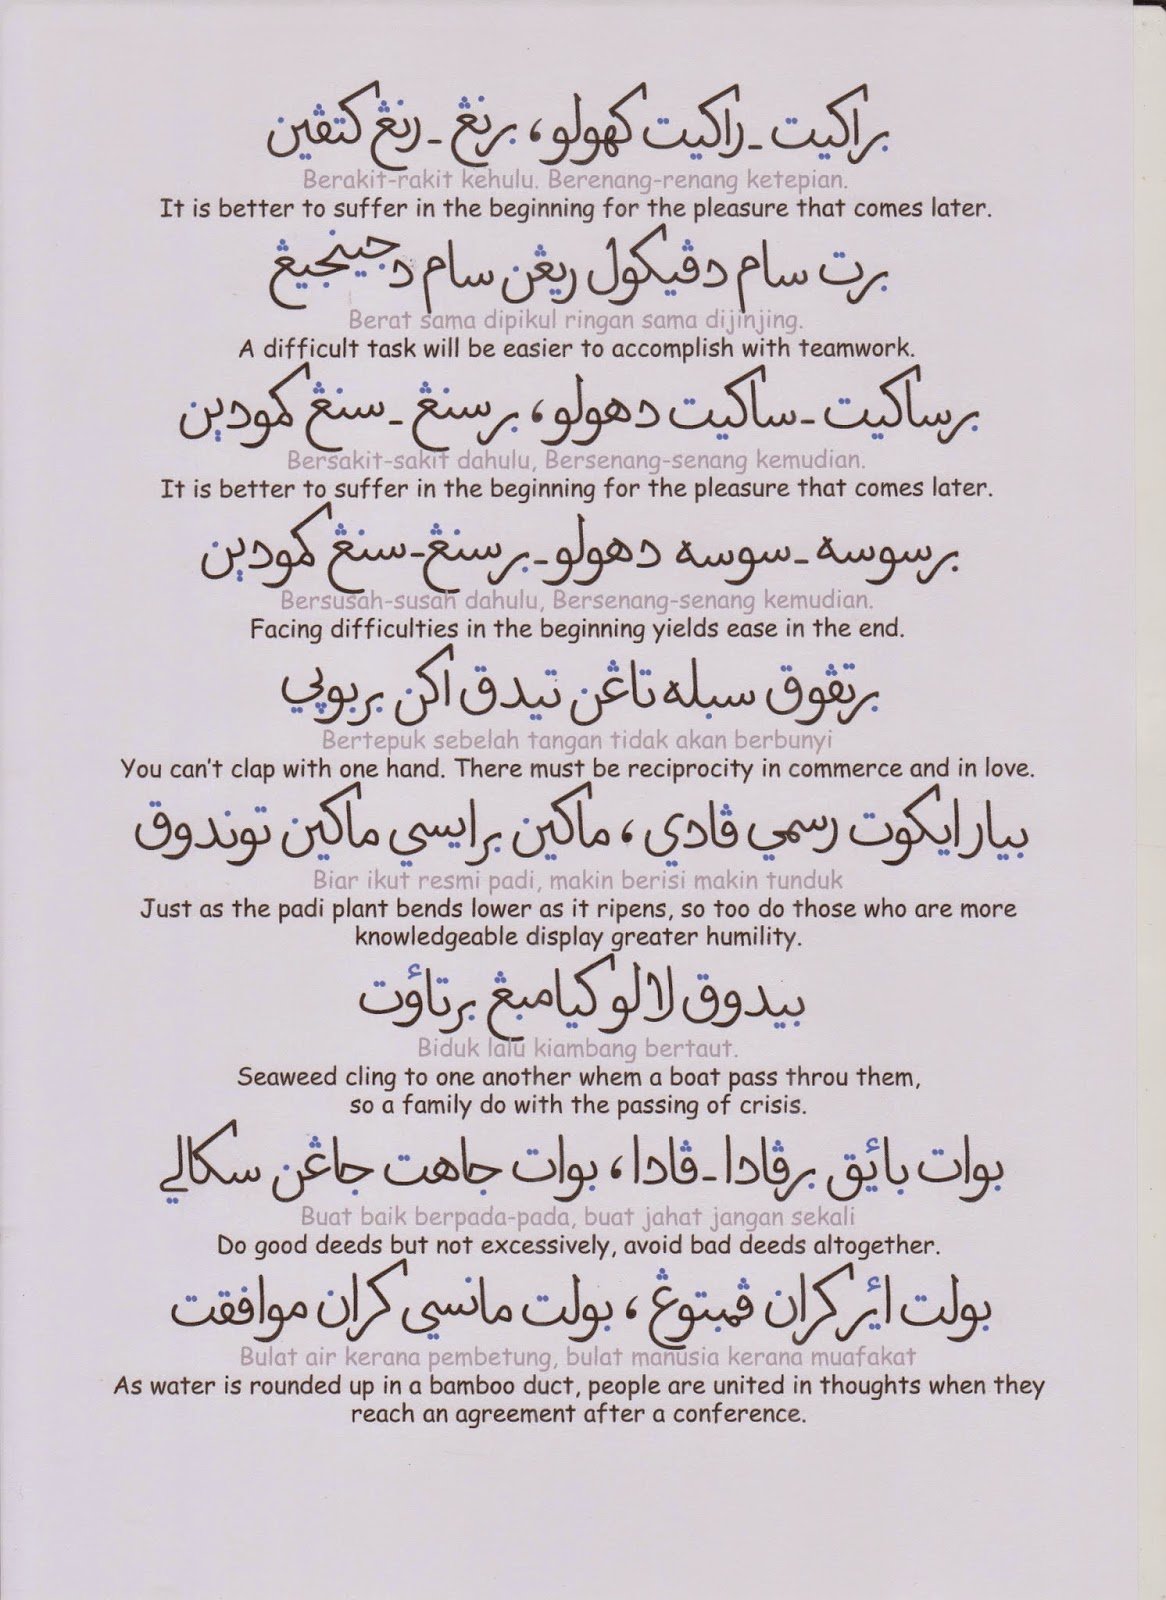 براكيت - راكيت كهولو، برنڠ - رنڠ كتڤين
Berakit-rakit kehulu. Berenang-renang ketepian.
It is better to suffer in the beginning for the pleasure that comes later.
برت سام دڤيكول ريڠن سام دجينجيڠ
Berat sama dipikul ringan sama dijinjing.
A difficult task will be easier to accomplish with teamwork.
برساكيت - ساكيت دهولو، برسنڠ - سنڠ كمودين
Bersakit-sakit dahulu, Bersenang-senang kemudian.
It is better to suffer in the beginning for the pleasure that comes later.
برسوسه - سوسه دهولو - برسنڠ - سنڠ كمودين
Bersusah-susah dahulu, Bersenang-senang kemudian.
Facing difficulties in the beginning yields ease in the end.
برتڤوق سبله تاڠن تيدق اكن بربوڽي
Bertepuk sebelah tangan tidak akan berbunyi
You can't clap with one hand. There must be reciprocity in commerce and in love.
بيار ايكوت رسمي ڤادي، ماكين برايسي ماكين توندوق
Biar ikut resmi padi, makin berisi makin tunduk
Just as the padi plant bends lower as it ripens, so too do those who are more
knowledgeable display greater humility.
بيدوق لالو كيامبڠ برتاؤت
Biduk lalu kiambang bertaut.
Seaweed cling to one another whem a boat pass throu them,
so a family do with the passing of crisis.
بوات بائيق برڤادا - ڤادا، بوات جاهت جاڠن سكالي
Buat baik berpada-pada, buat jahat jangan sekali
Do good deeds but not excessively, avoid bad deeds altogether.
بولت اير كران ڤمبتوڠ، بولت مانسي كران موافقت
Bulat air kerana pembetung, bulat manusia kerana muafakat
As water is rounded up in a bamboo duct, people are united in thoughts when they
reach an agreement after a conference.